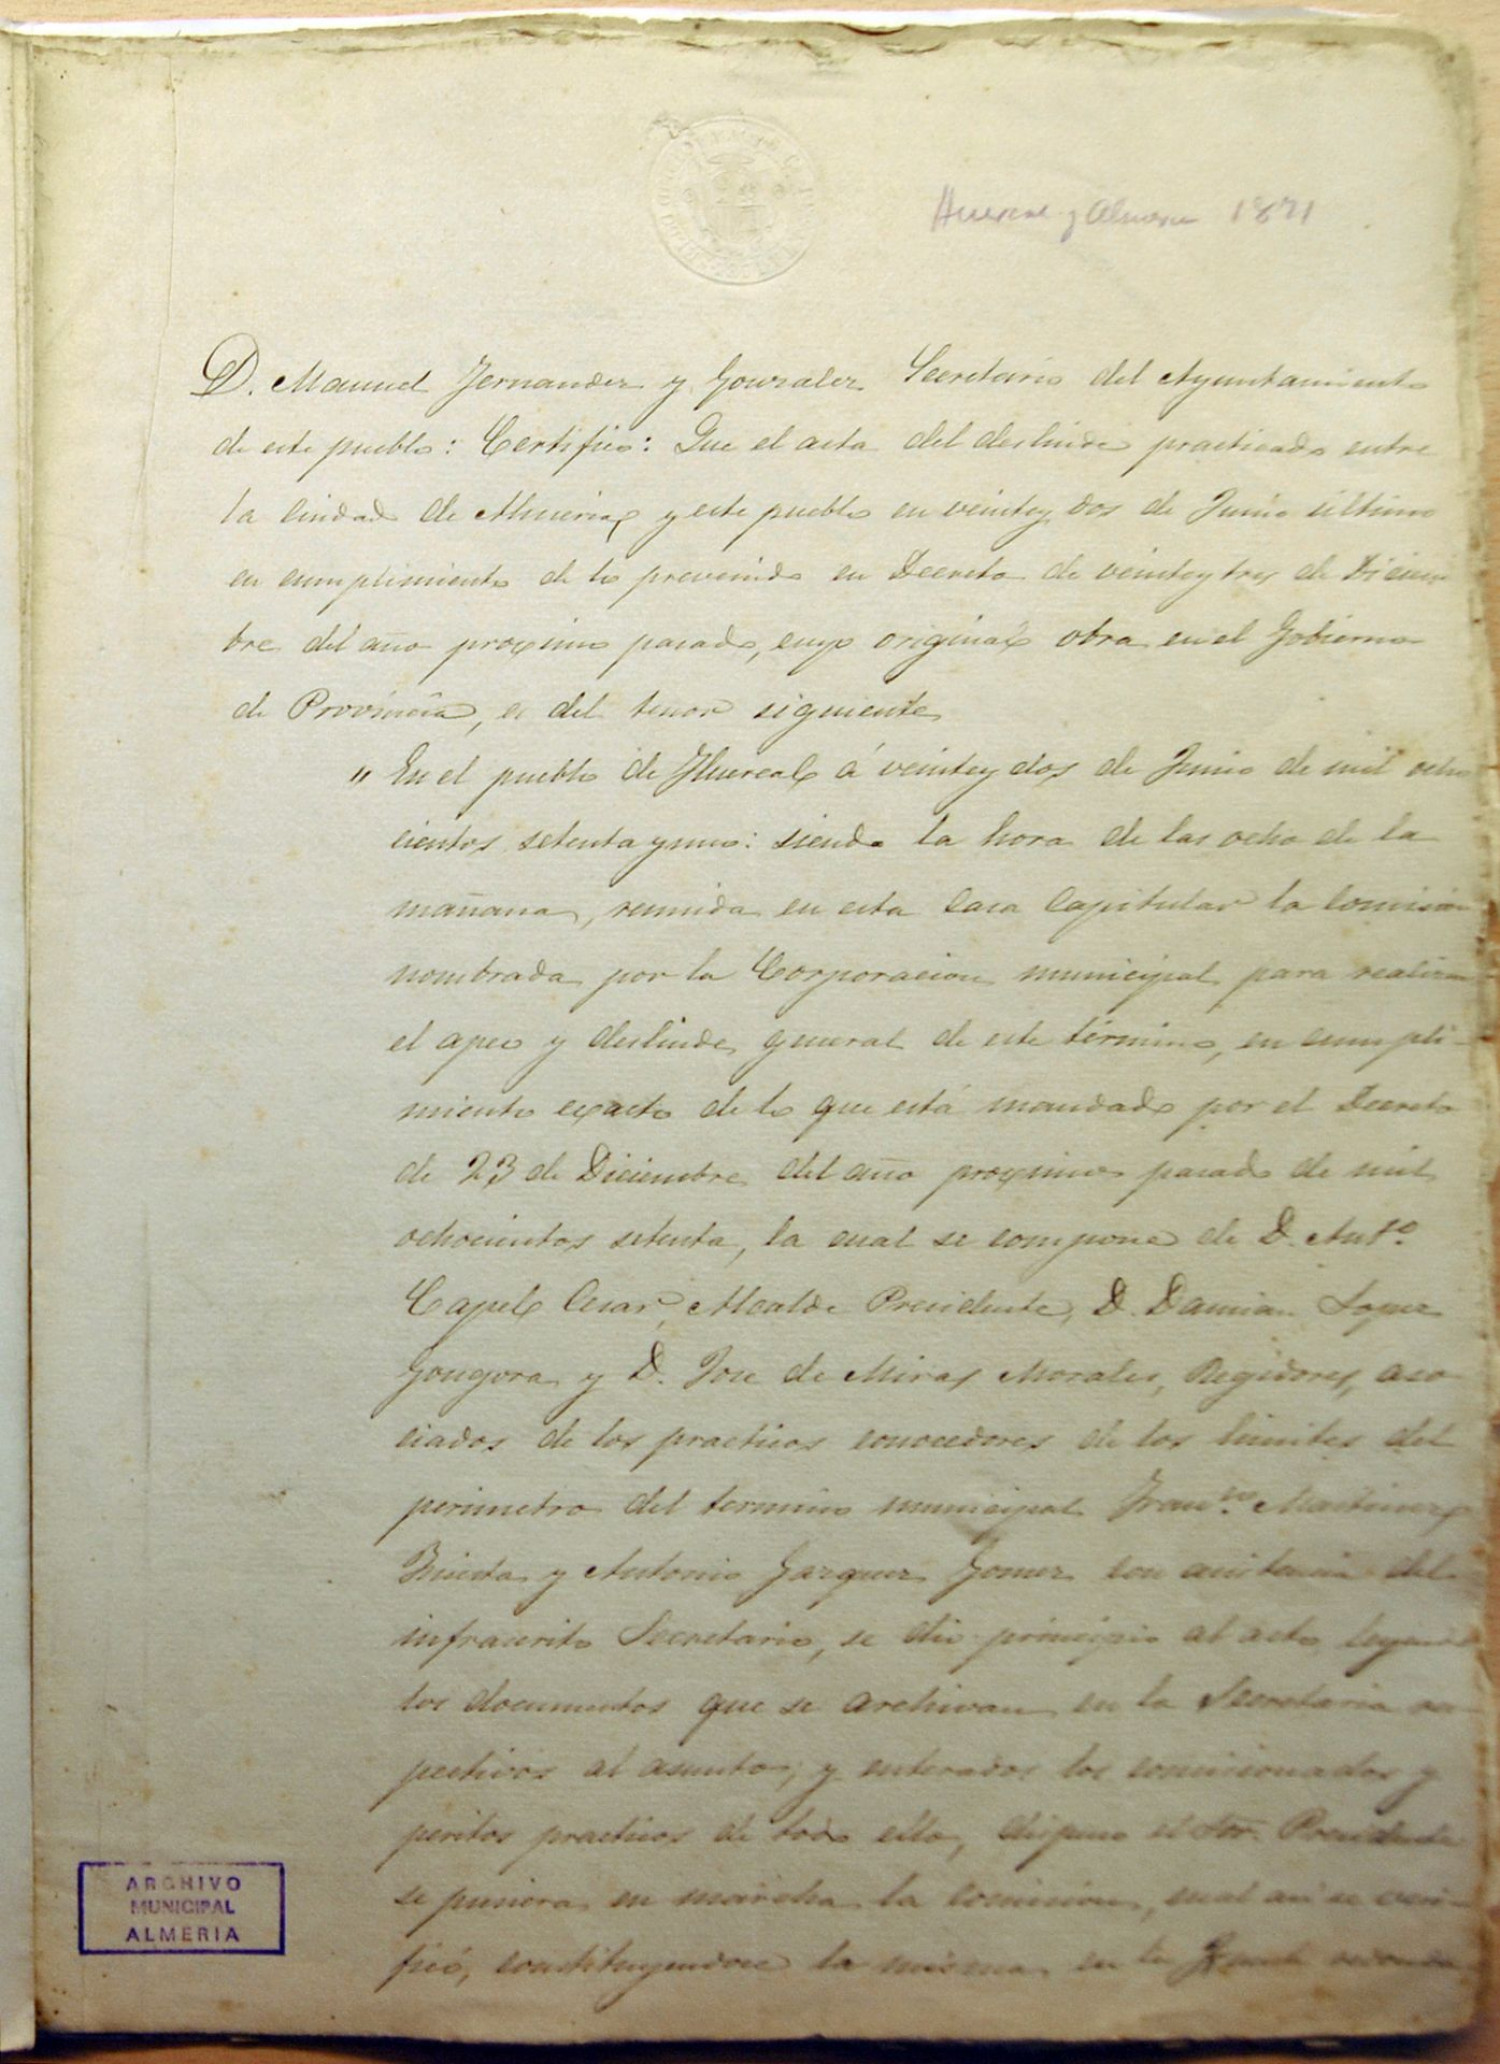 Huercal y Almeria 1871
D. Manuel Fernandez y Gonzalez Secretario del Ayuntamiento
de este pueblo: Certifico: Que el acta del deslinde practicado entre
la Ciudad de Almeria y este pueblo en veintey dos de Junio ultimo
en cumplimiento de lo prevenido en Decreto de veintey tres de Diciem
bre del año proximo pasado, cuyo original obra en el Gobierno
de Provincia, es del tenor siguiente
" En el pueblo de Huercal á veintey dos de Junio de mil ocho
cientos setenta y uno: siendo la hora de las ocho de la
mañana, reunida en esta Casa Capitular la Comision
nombrada por la Corporacion municipal para realizar
el apeo y deslinde general de este término, en cumpli-
miento exacto de lo que está mandado por el Decreto
de 23 de Diciembre del año proximo pasado de mil
ochocientos setenta, la cual se compone de D. Antº
Capel Cesar, Alcalde Presidente, D. Damian Lopez
Gongora y D. Jose de Miras Morales, Regidores, aso
ciados de los practicos conocedores de los limites del
perimetro del termino municipal Franco. Martinez
y Antonio Gazquez Gomez con asistencia del
infrascrito Secretario, se dio principio al acto leyendo
los documentos que se archivan en la Secretaria res
pectivos al asunto; y enterados los comisionados y
peritos practicos de todo ello, dispuso el Sor. Presidente
se pusiera en marcha la Comision, cual asi se veri-
ficó, constituyendose la misma en la
ARCHIVO
MUNICIPAL
ALMERIA